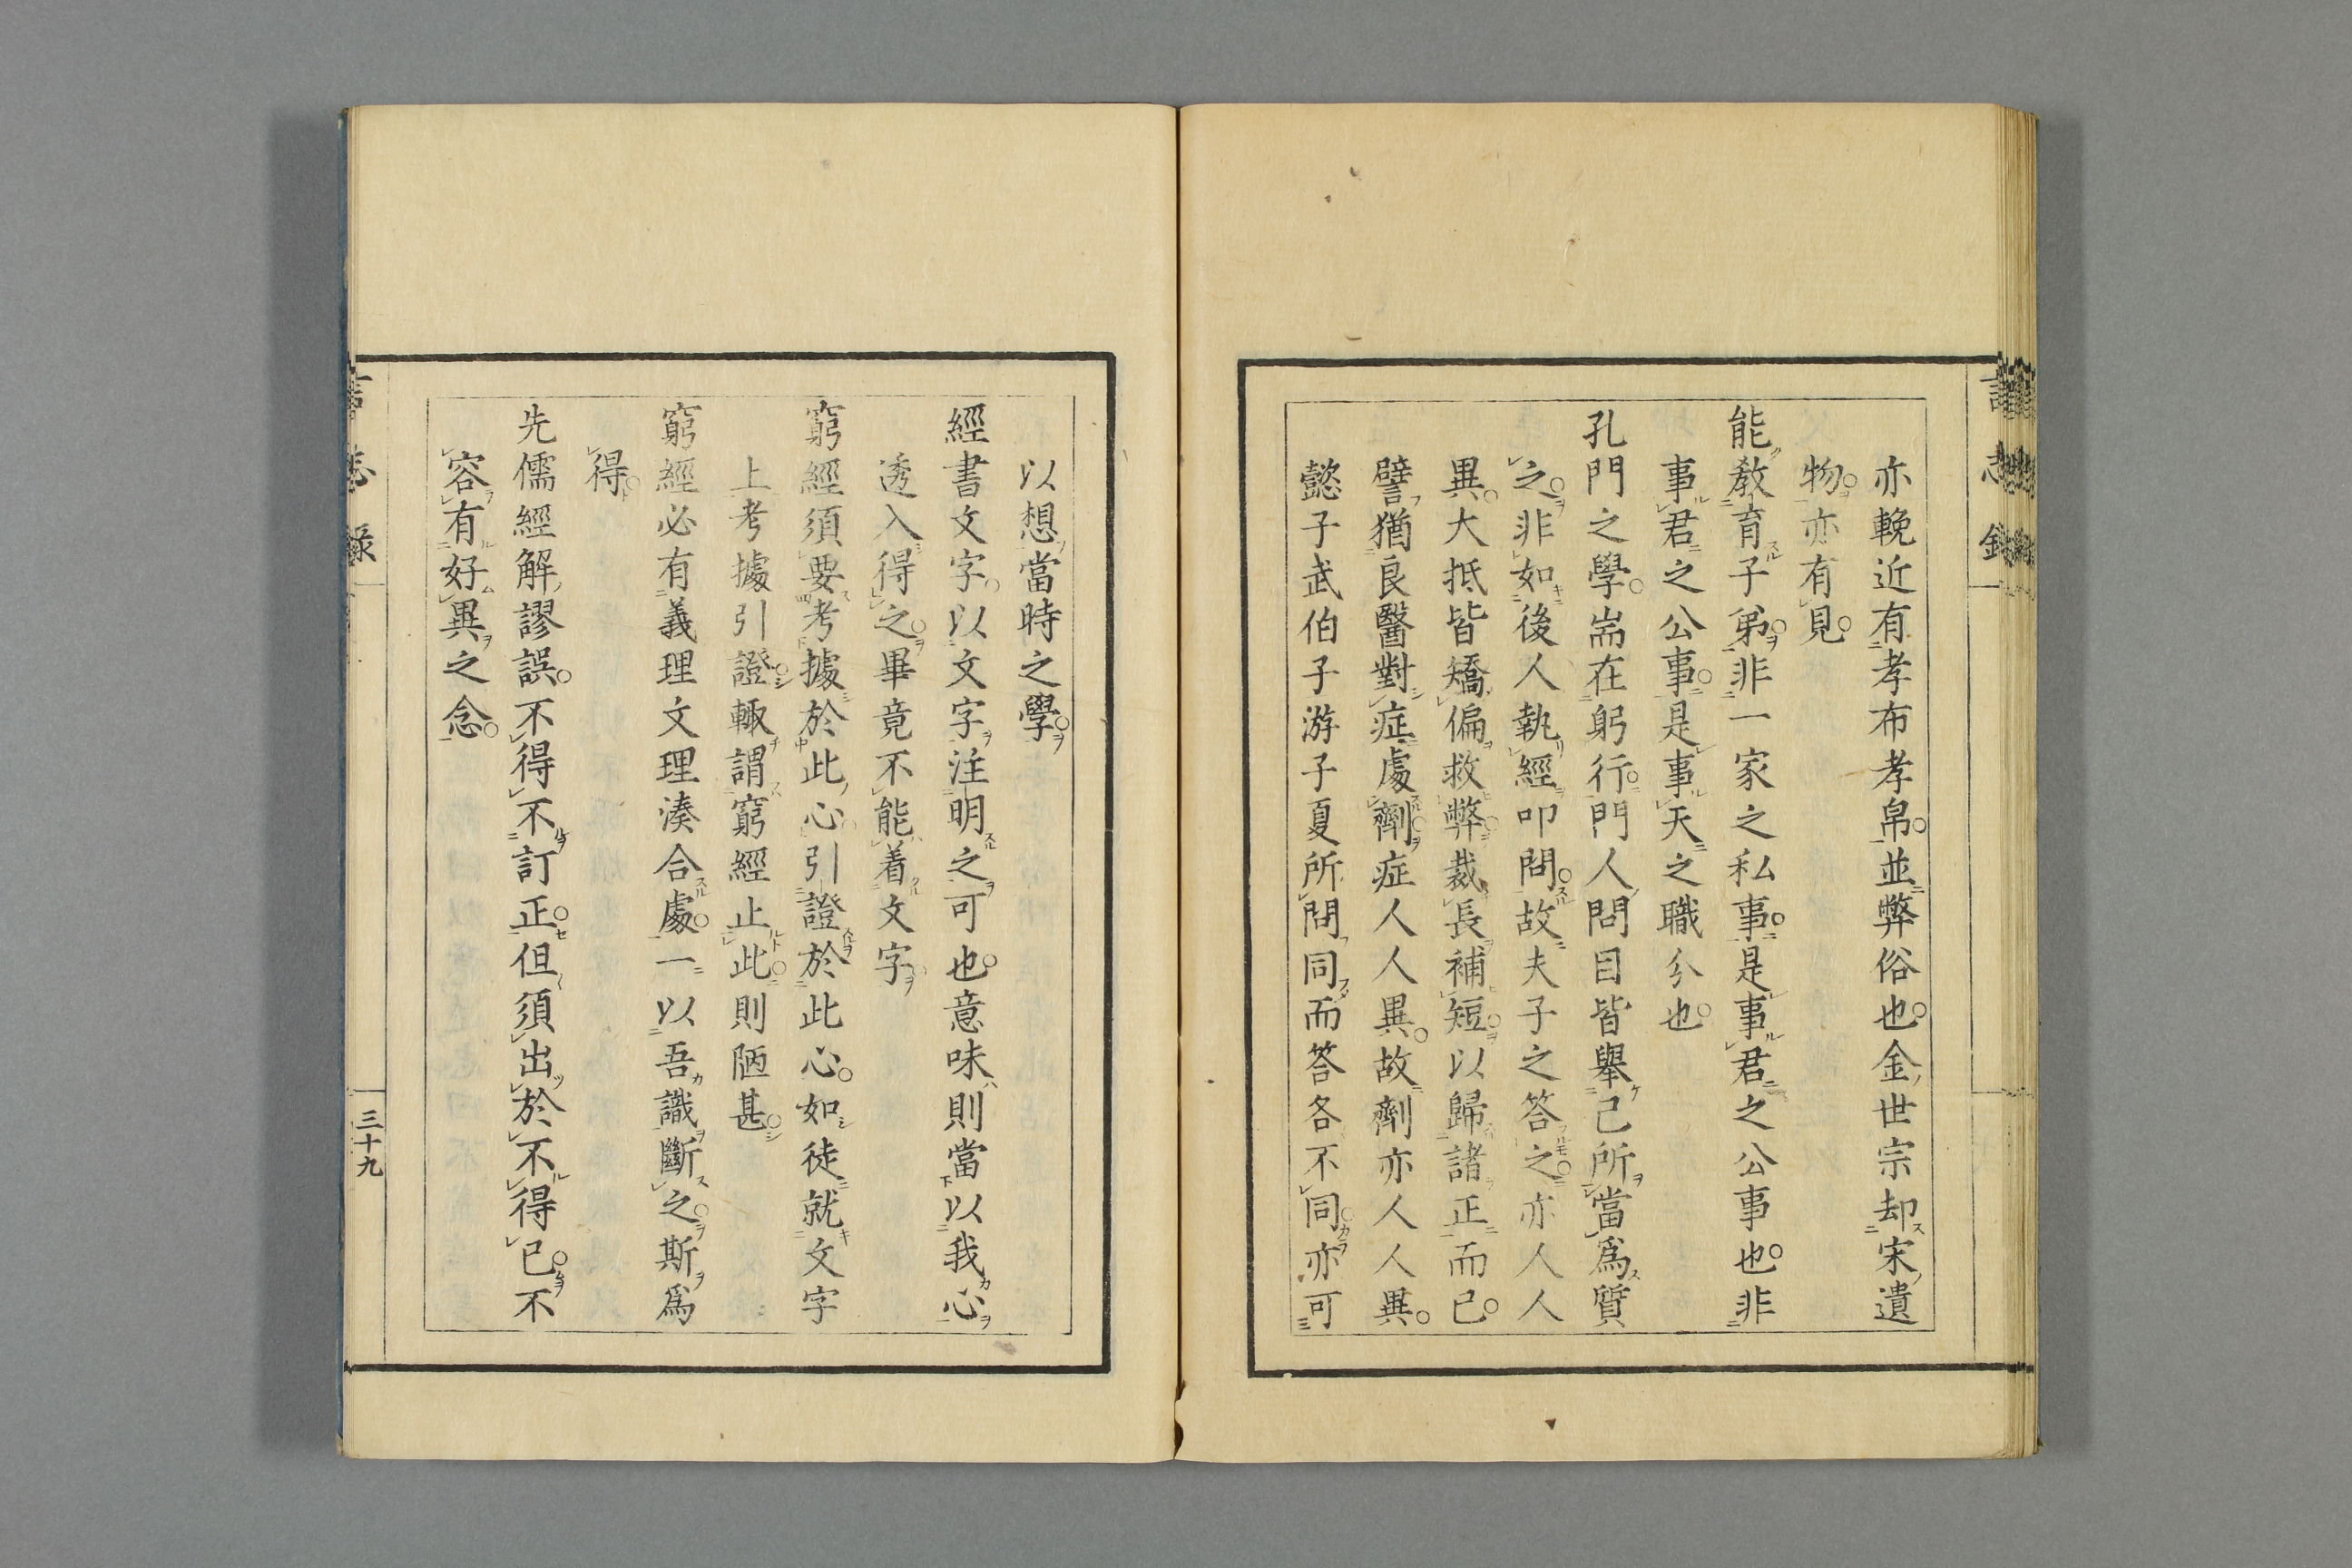 亦輓近有孝布孝帛並弊俗也金世宗却宋遺
物亦有見
能教育子弟非一家之私事是事君之公事也非
事君之公事是事天之職分也
孔門之學耑在躬行門人問目皆舉己所當爲質
之非如後人執經叩問故夫子之答之亦人人
異大抵皆矯偏救弊裁長補短以歸諸正而已
譬猶良醫對症處劑症人人異故劑亦人人異
懿子武伯子游子夏所問同而答各不同亦可
以想當時之學
經書文字以文字注明之可也意味則當以我心
透入得之畢竟不能着文字
窮經須要考據於此心引證於此心如徒就文字
上考據引證輙謂窮經止此則陋甚
窮經必有義理文理湊合處一以吾識斷之斯爲
得
先儒經解謬誤不得不訂正但須出於不得已不
容有好異之念
言志錄
三十九